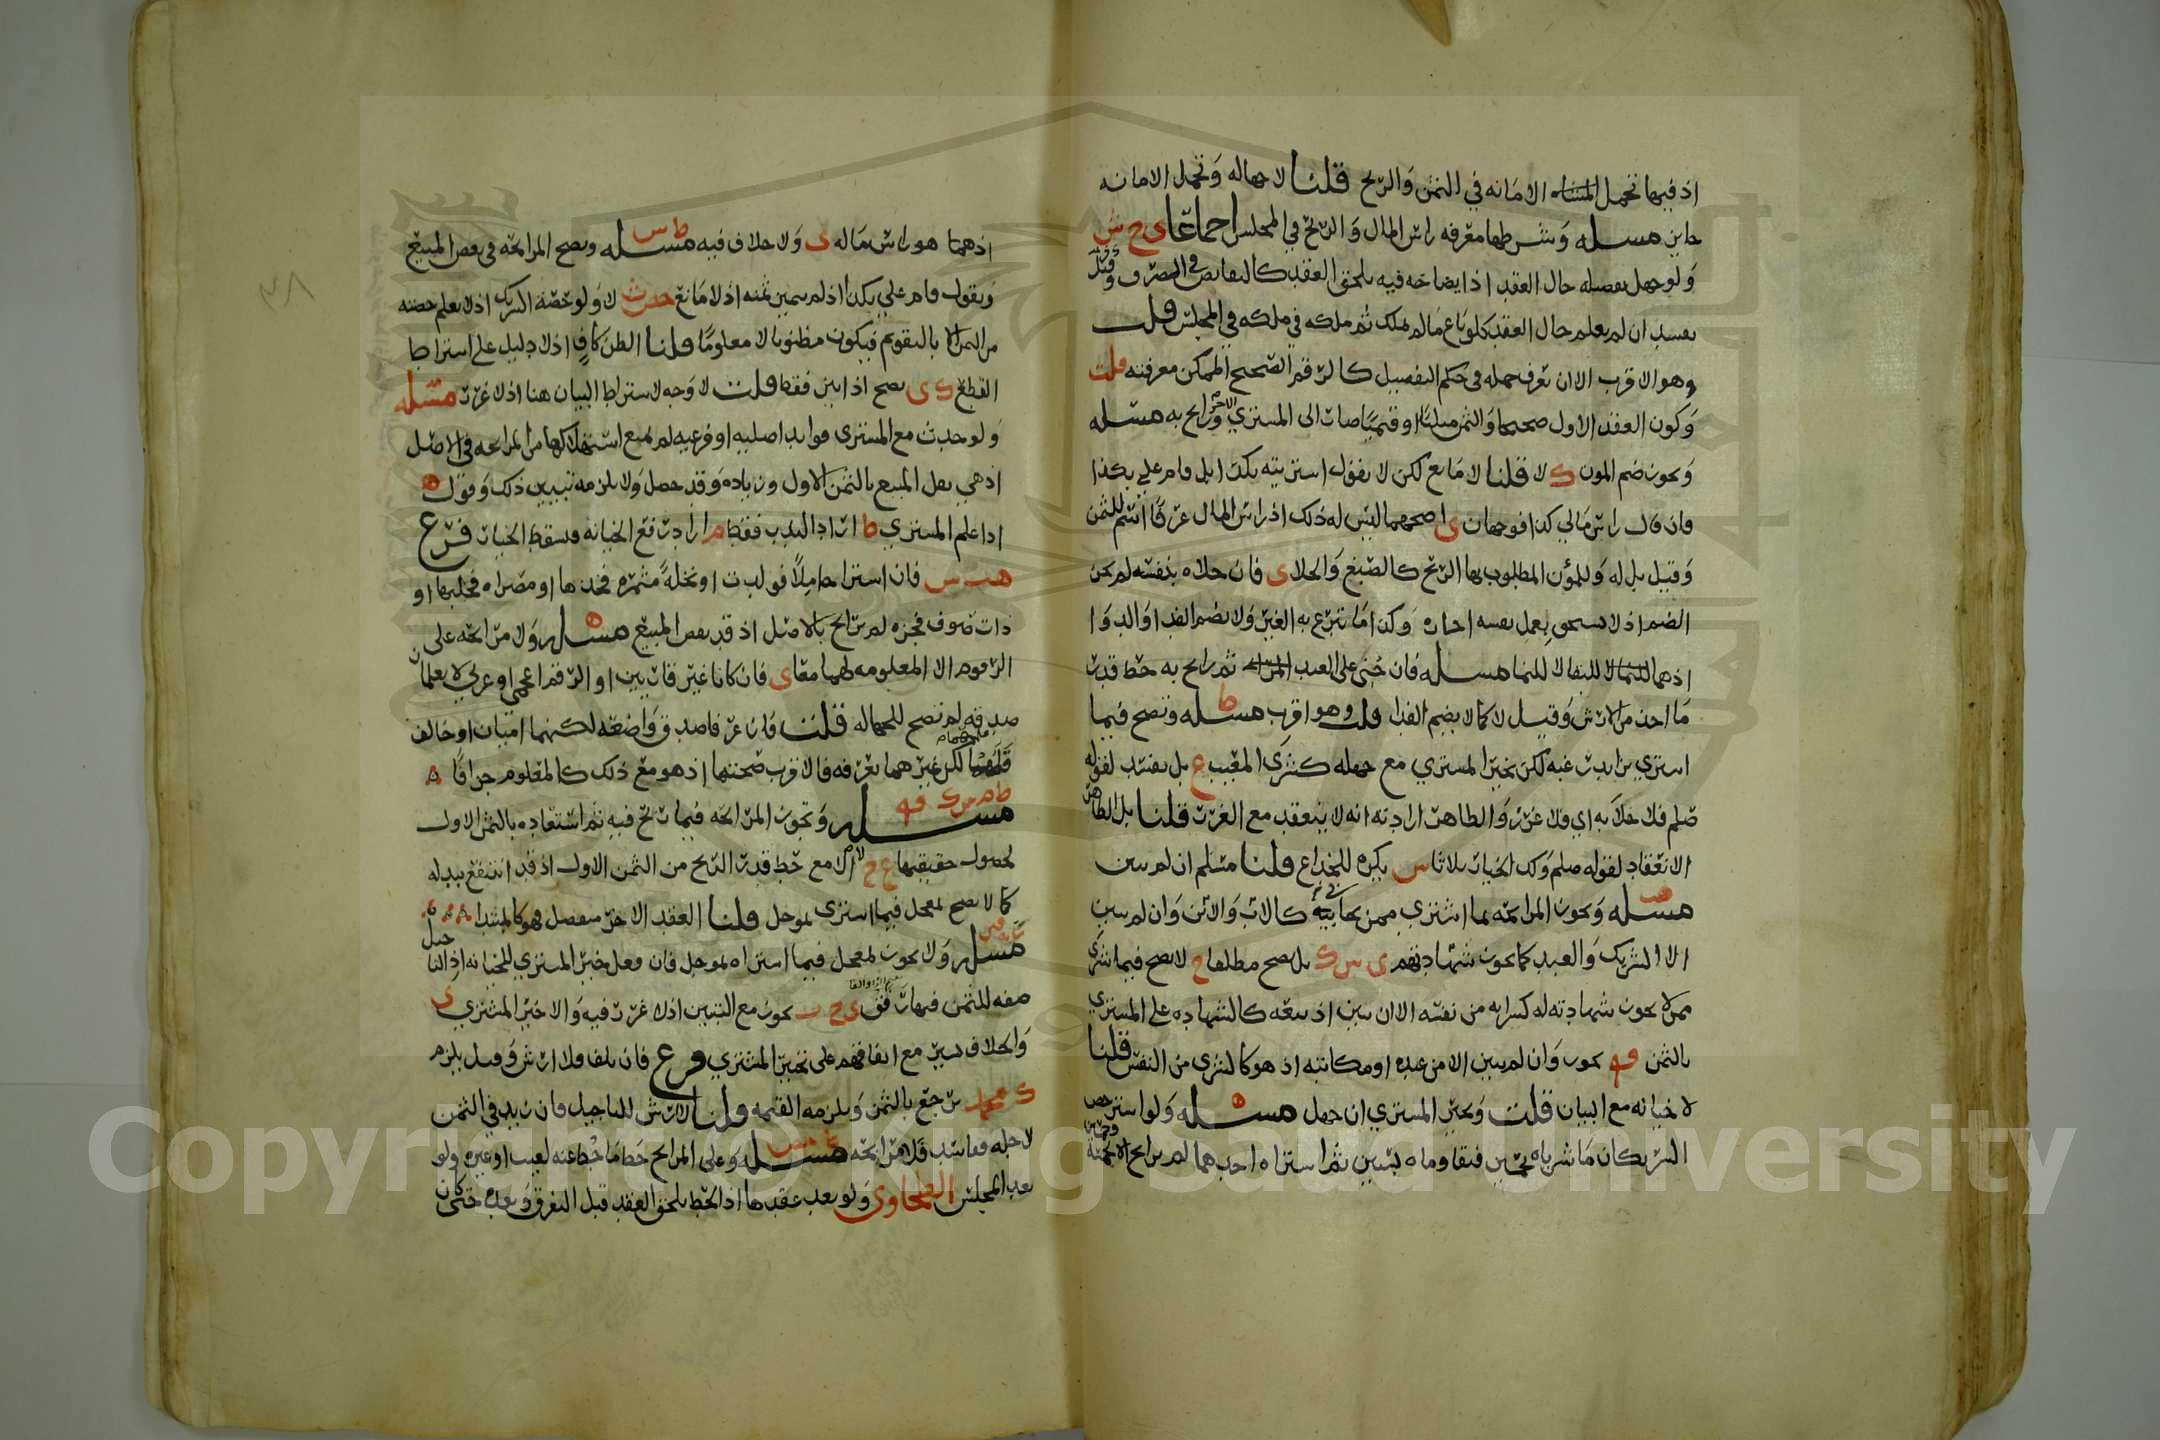 اذ فيها تحمل الامانه في الثمن والربح قلنا لا جهاله وتحمل الامانه
جاىز مسله وشرطها معرفه راس المال والربح في المجلس اجماعا ى ح ش
ولو جهل تفصيله حال العقد اذ ايضاحه فيه يلحق العقد كالتقابض في الصرف وقيل
يفسد ان لم يعلم حال العقد كلو باع مالم يملك ثم ملكه في ملكه في المجلس قلت
وهو الاقرب الا ان تعرف جمله في حكم التفصيل كالرقم الصحيح الممكن معرفته قلت
وكون العقد الاول صحيحا والثمن مثليا او قيميا صار الى المشتري الاخر ورابح به مسله
ويجوز ضم المون ك لا قلنا لا مانع لكن لا يقول اشتريته بكذا بل قام علي بكذا
فان قال راس مالي كذا فوجهان ى اصحهما ليس له ذلك اذ راس المال عرفا اسم للثمن
وقيل بل له وللمؤن المطلوب بها الربح كالصبغ والجلا ى فان جلاه بنفسه لم يجز
الضم اذ لا يستحق بعمل نفسه اجاره وكذا ما تبرع به الغير ولا يضم الفدا والدوا
اذ هما للبقا لا للنما مسله فان جني على العبد ثم رابح به حط قدر
ما اخذ من الارش وقيل لا كما لا يضم الفدا قلت وهو اقرب مسله وتصح فيما
اشتري بزايد رغبه لكن يخير المشتري مع جهله كشرى المعيب ع بل يفسد لقوله
صلم فلا خلابه اي فلا غرر والظاهر ارادته انه لا ينعقد مع الغرر قلنا بل الظاهر
الانعقاد لقوله صلم ولك الخيار ثلاثا س يكره للخداع قلنا مسلم ان لم يبين
مسله ويجوز المرابحه بما اشتري ممن يحابيه كالاب والابن وان لم يبين
الا الشريك والعبد كما يجوز شهادتهم ى س ك بل يصح مطلقا ح لا يصح فيما شري
ممن لا يجوز شهادته له كشرايه من نفسه الا ان يبين اذ بيعه كالشهاده على المشتري
بالثمن قه يجوز وان لم يبين الا من عبده او مكاتبه اذ هو كالشري من النفس قلنا
لا خيانه مع البيان قلت ويخير المشتري ان جهل مسله ولو استرخص
الشريكان ما شرياه بخمسين فتقاوماه بستين ثم اشتراه احدهما لم يرابح الا بخمسة وخمسين
اذ هما هو راس ماله ى ولا خلاف فيه مسله ويصح المرابحه في بعض المبيع
ويقول قام علي بكذا اذ لم يبين ثمنه اذ لا مانع لا ولو حصة الشريك اذ لا يعلم حصته
من الثمن الا بالتقويم فيكون مظنونا لا معلوما قلنا الظن كاف اذ لا دليل على اشتراط
القطع ك ى يصح اذا بين فقط قلت لا وجه لاشتراط البيان هنا اذ لا غرر مسله
ولو حدث مع المشتري فوايد اصليه او فرعيه لم يمنع استهلاكها من المرابحه في الاصل
اذ هي نقل المبيع بالثمن الاول وزياده وقد حصل ولا يلزمه تبيين ذلك وقول ه
اذا علم المشتري ط اراد الندب فقط م اراد رفع الخيانه فسقط الخيار فرع
هب س فان اشترا حاملا فولدت او نخلة مثمره فجدها او مصراه فحلبها او
ذات صوف فجزه لم يرابح بالاصل اذ قد نقص المبيع مسله ولا مرابحه على
الرقوم الا المعلومه لهما معا ى فان كانا غير قاريين او الرقم اعجمي او عربي لا يعلمان
صدقه لم تصح للجهاله قلت فان عرفا صدق واضعه لكنهما اميان او خالف
لكن غيرهما يعرفه فالاقرب صحتها اذ هو مع ذلك كالمعلوم جزافا
مسله وتجوز المرابحه فيما ربح فيه ثم استعاده بالثمن الاول
لحصول حقيقتها ع ح لا الا مع حط قدر الربح من الثمن الاول اذ قد انتفع ببدله
كما لا يصح بمعجل فيما اشترى بموجل قلنا العقد الاخر منفصل فهو كالمبتدا
مسله ولا يجوز بمعجل فيما اشتراه بموجل فان فعل خير المشتري للخيانه اذ التاجيل
صفه للثمن فيها رفق ى ح يجوز مع التبيين اذ لا غرر فيه والا خير المشتري ى
والخلاف يسير مع اتفاقهم على تخيير المشتري فرع فان تلف فلا ارش وقيل يلزم
يرجع بالثمن ويلزمه القيمه قلنا لا ارش للتاجيل فان زيد في الثمن
لاجله ففاسد فلا مرابحه مسله وعلى المرابح حط ما حط عنه لعيب او غيره ولو
بعد المجلس الطحاوى ولو بعد عقدها اذ الحط يلحق العقد قبل التفرق وبعده حتى كان